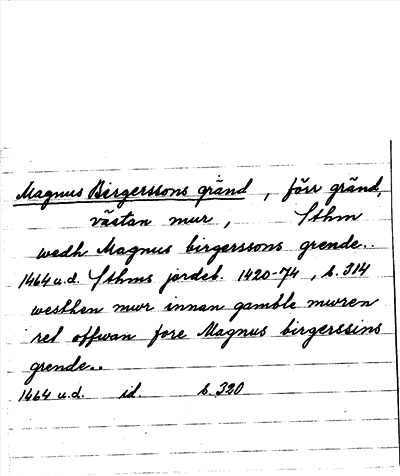 Magnus Birgerssons gränd, förr gränd,
västan mur, Sthm
wedh Magnus birgerssons grende..
1464 u.d. Sthms jordeb. 1420-74, s. 314
westhen mwr innan gamble mwren
rel offwan fore Magnus birgerssins
grende..
1464 u.d. id. s. 320